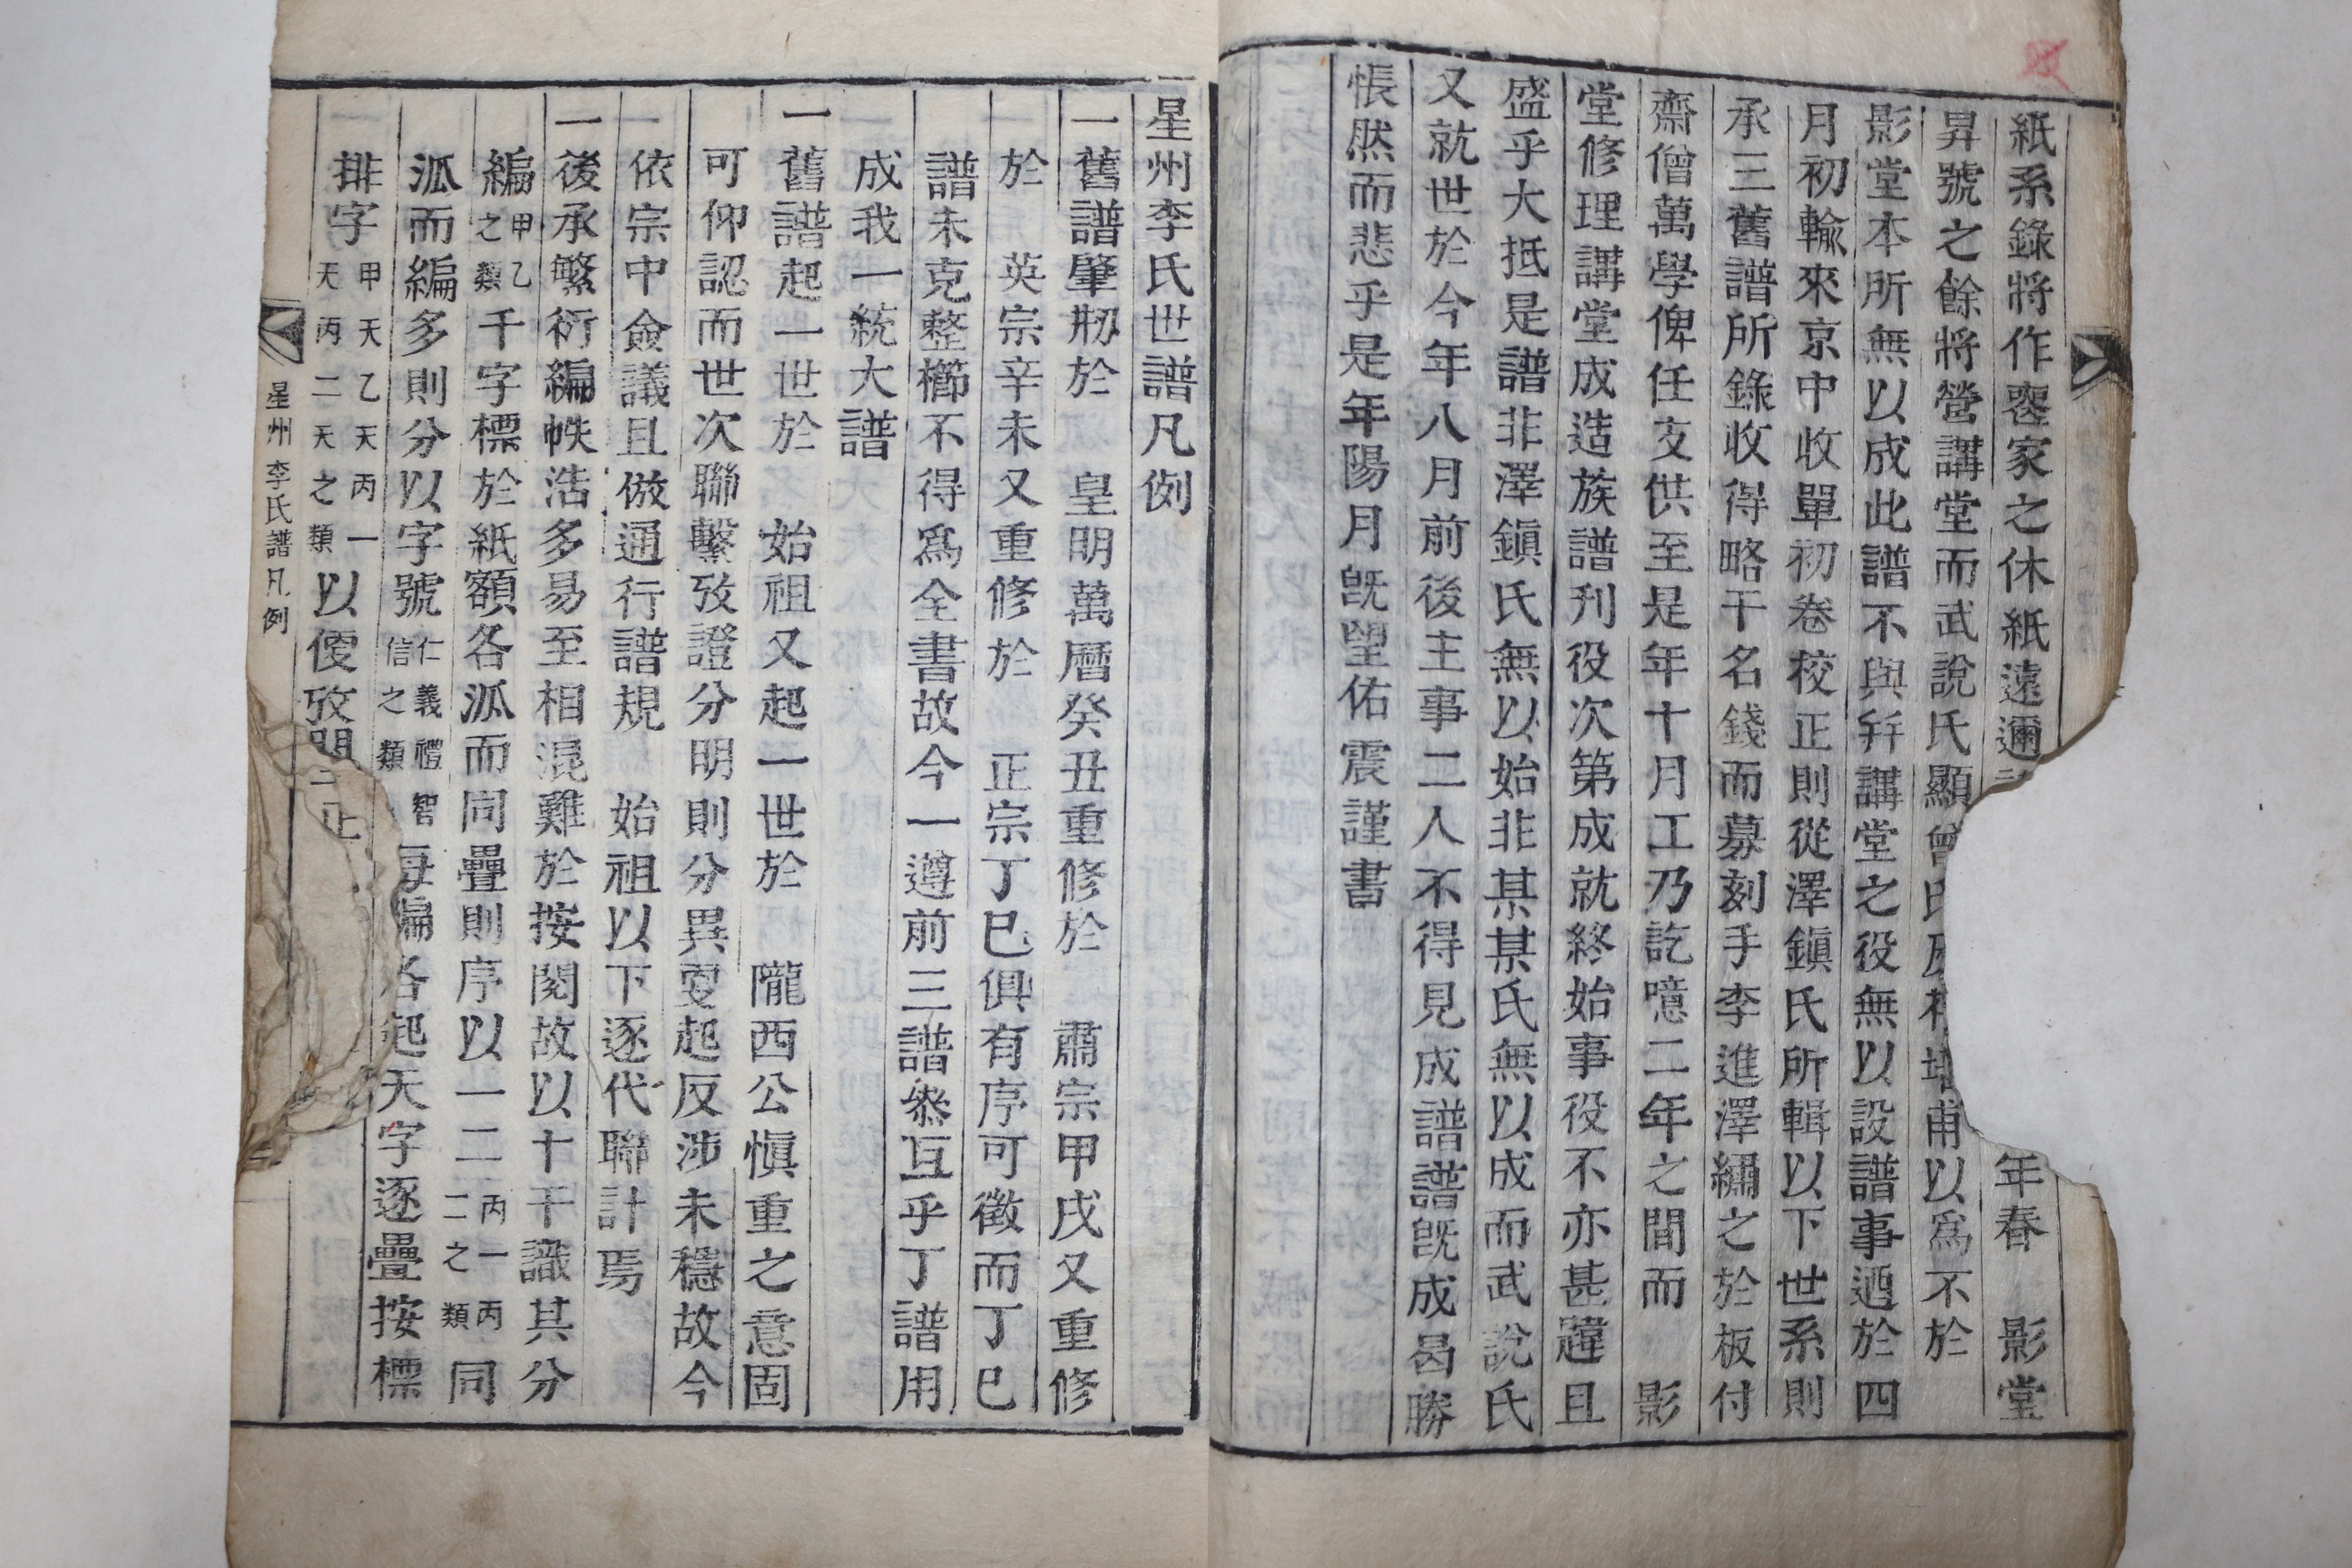 紙系錄將作窓家之休紙遠邇年春 影堂
昇號之餘將營講堂而武說氏顯曾甫以爲不於
影堂本所無以成此譜不與幷講堂之役無以設譜事迺於四
月初輸來京中收單初卷校正則從澤鎭氏所輯以下世系則
承三舊譜所錄收得略干名錢而募刻手李進澤繡之於板付
齋僧萬學俾任支供至是年十月工乃訖噫二年之間而 影
堂修理講堂成造族譜刊役次第成就終始事役不亦甚韙且
盛乎大抵是譜非澤鎭氏無以始非某某氏無以成而武說氏
又就世於今年八月前後主事二人不得見成譜譜旣成曷勝
悵然而悲乎是年陽月旣望佑震謹書
星州李氏世譜凡例
一舊譜肇刱於 皇明萬曆癸丑重修於 肅宗甲戌又重修
於 英宗辛未又重修於 正宗丁巳俱有序可徵而丁巳
譜未克整櫛不得爲全書故今一遵前三譜叅互乎丁譜用
成我一統大譜
一舊譜起一世於 始祖又起一世於 隴西公愼重之意固
可仰認而世次聯繫攷證分明則分異更起反涉未穩故今
依宗中僉議且倣通行譜規 始祖以下逐代聯計焉
一後承繁衍編帙浩多易至相混難於按閱故以十干識其分
編甲乙之類千字標於紙額各派而同疊則序以一二丙一丙二之類同
派而編多則分以字號仁義禮智信之類每編各起天字逐疊按標
排字甲天乙天丙一天丙二天之類以便攷
星州李氏譜凡例